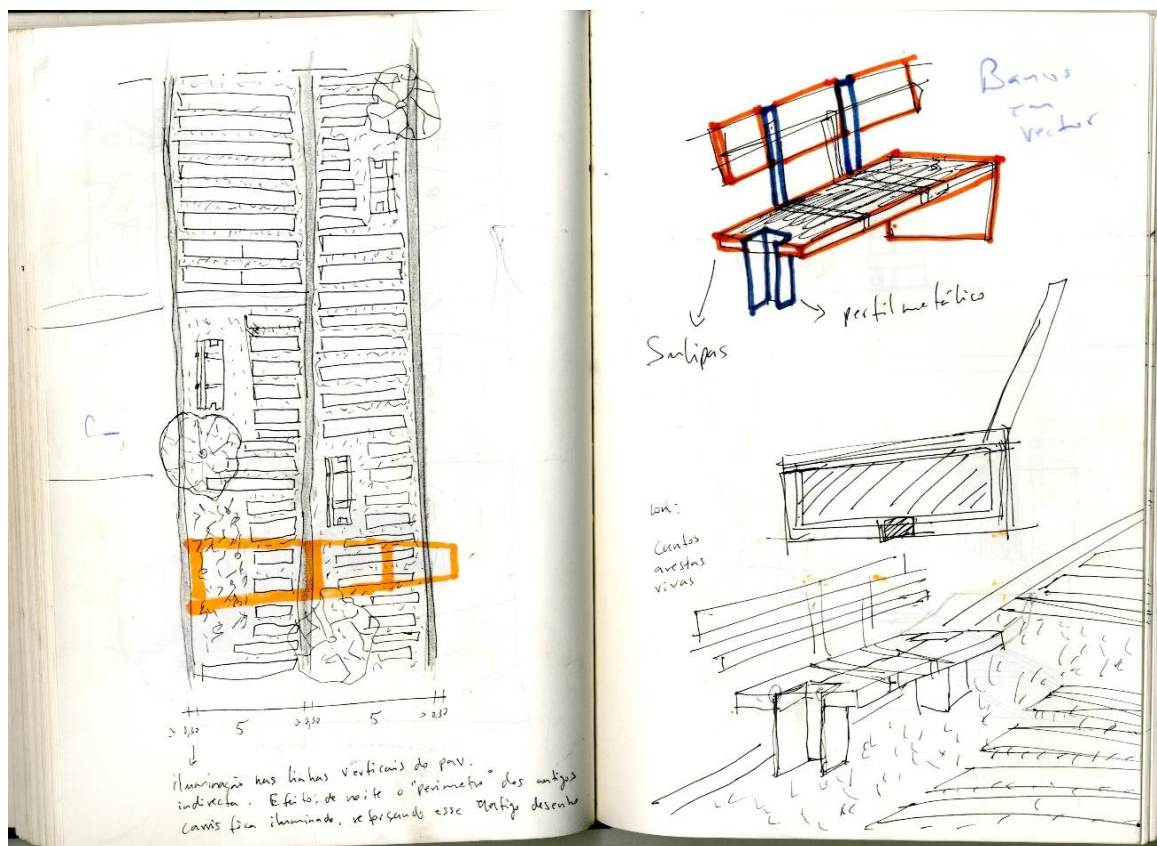 ≥ 0,50 5 ≥ 0,50 5 ≥ 0,50
iluminação nas linhas verticais do pav.
indirecta. Efeito: de noite o "perimetro" dos antigos
carris fica iluminado, reforçando esse antigo desenho
Bancos
em
vector
perfil metálico
Sulipas
Cantos
arestas
vivas